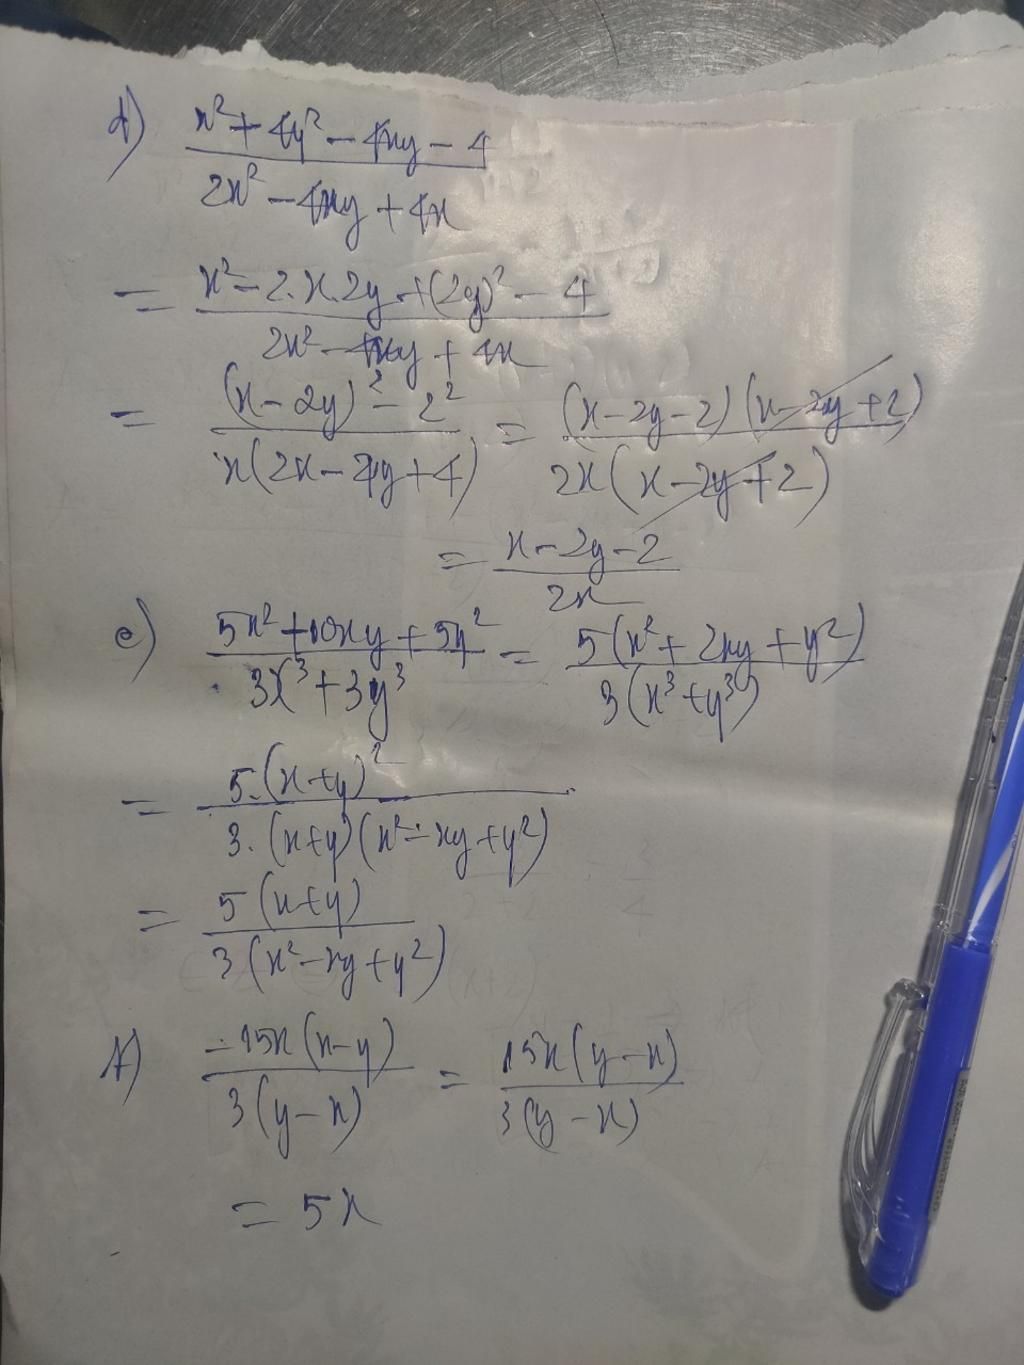 d) (x² + 4y² - 4xy - 4) / (2x² - 4xy + 4x)
= (x² - 2.x.2y + (2y)² - 4) / (2x² - 4xy + 4x)
= ((x - 2y)² - 2²) / (x(2x - 4y + 4)) = ((x - 2y - 2)(x - 2y + 2)) / (2x(x - 2y + 2))
= (x - 2y - 2) / (2x)
e) (5x² + 10xy + 5y²) / (3x³ + 3y³) = (5(x² + 2xy + y²)) / (3(x³ + y³))
= (5.(x + y)²) / (3.(x + y)(x² - xy + y²))
= (5(x + y)) / (3(x² - xy + y²))
f) (-15x(x - y)) / (3(y - x)) = (15x(y - x)) / (3(y - x))
= 5x